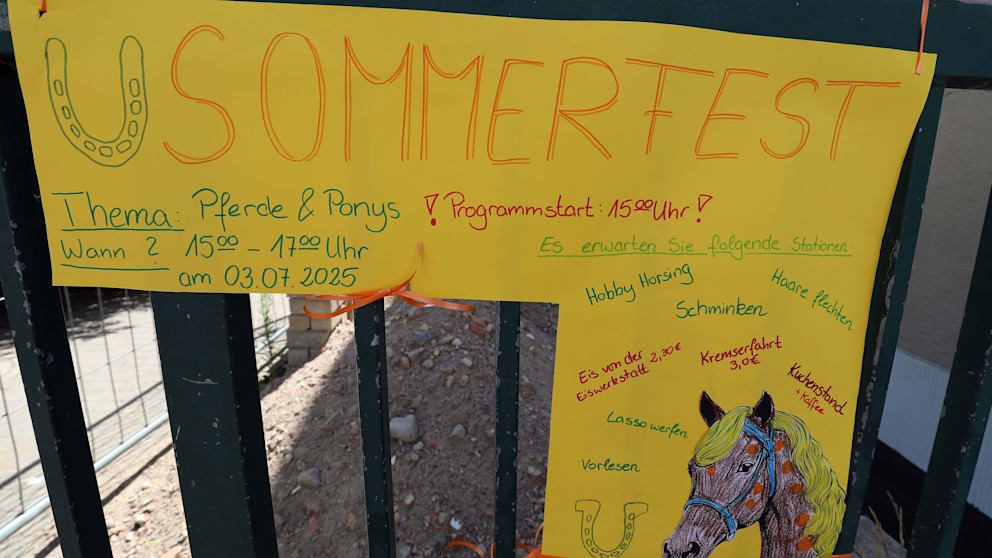 SOMMERFEST
Thema: Pferde & Ponys
Wann? 15⁰⁰ - 17⁰⁰ Uhr
am 03.07.2025
! Programmstart: 15⁰⁰ Uhr !
Es erwarten Sie folgende Stationen:
Hobby Horsing
Schminken
Haare flechten
Eis von der
Eiswerkstatt 2,30€
Kremserfahrt
3,0€
Kuchenstand
+ Kaffee
Lasso werfen
Vorlesen